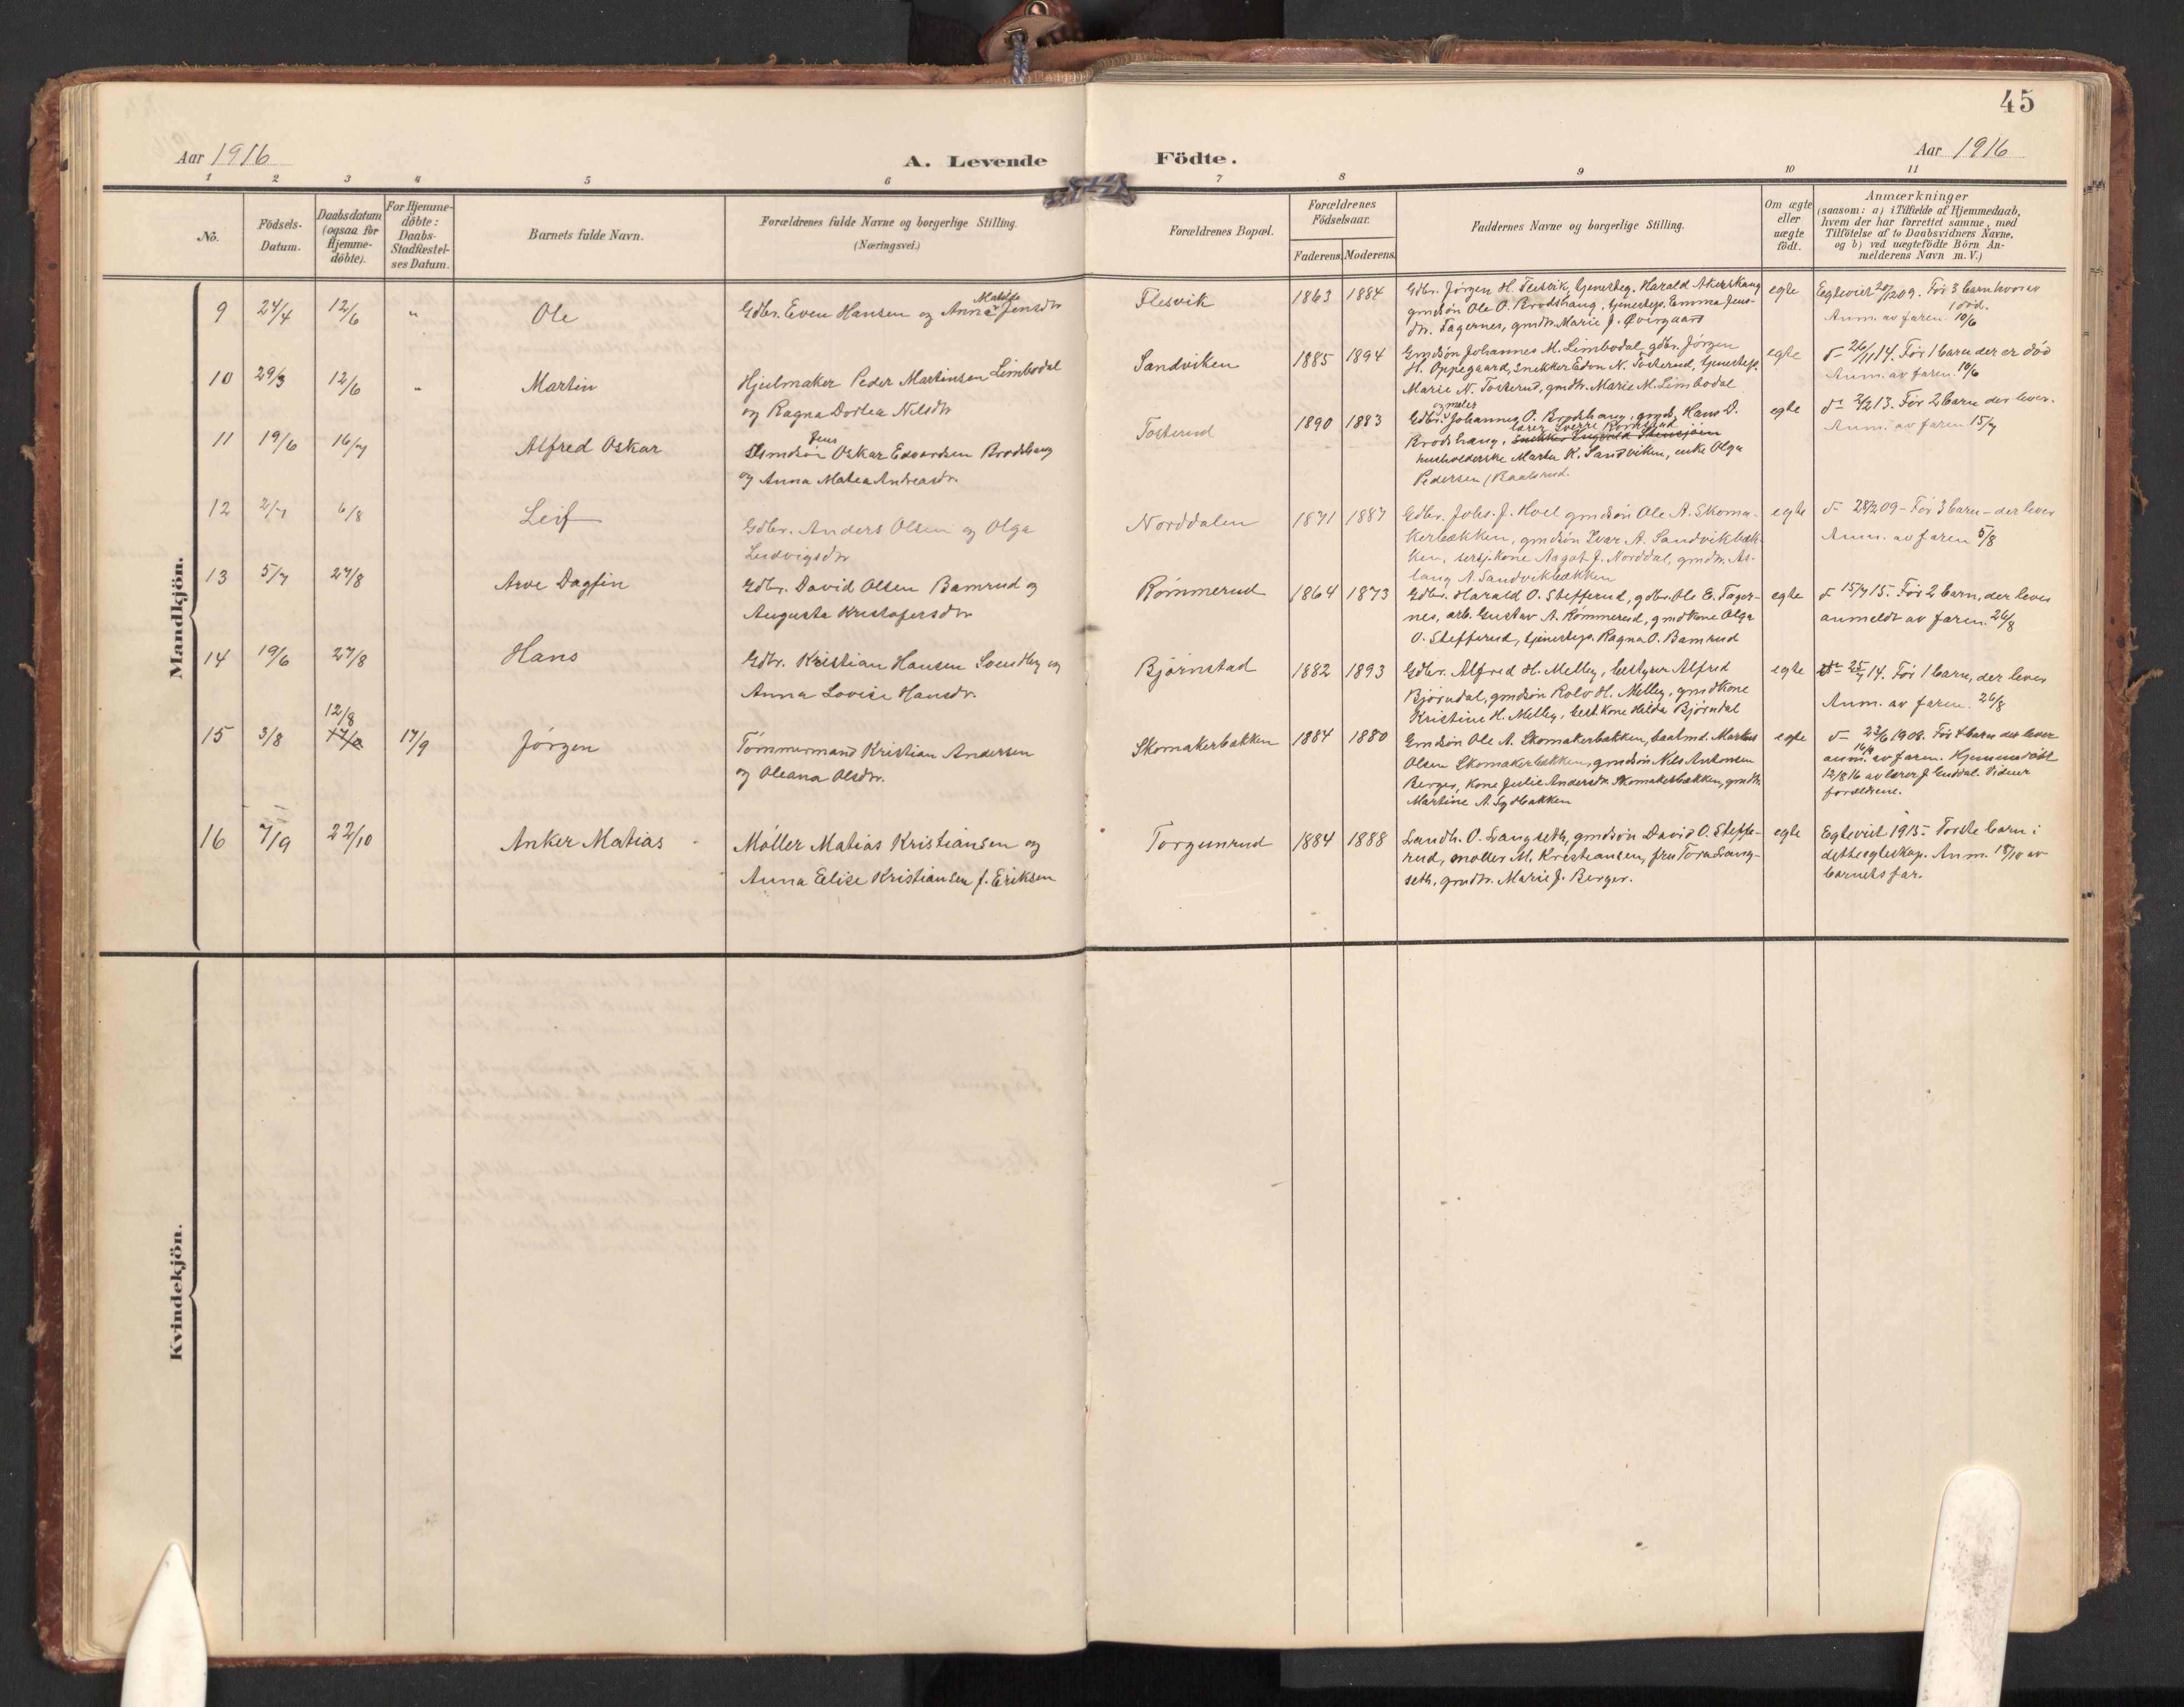 45
Aar 1916
A. Levende Födte.
Aar 1916
1 2 3 4 5 6 7 8 9 10 11
No.
Födsels-
Datum.
Daabsdatum
(ogsaa for
Hjemme-
döbte).
For Hjemme-
döbte:
Daabs-
Stadfæstel-
ses Datum.
Barnets fulde Navn.
Forældrenes fulde Navne og borgerlige Stilling.
(Næringsvei.)
Forældrenes Bopæl.
Forældrenes
Födselsaar.
Faderens. Moderens.
Faddernes Navne og borgerlige Stilling.
Om ægte
eller
uægte
födt.
Anmærkninger
(saasom: a) i Tilfælde af Hjemmedaab,
hvem der har forrettet samme, med
Tilföielse af to Daabsvidners Navne,
og b) ved uægtefödte Börn An-
melderens Navn m.V.)
Mandkjön.
9 24/4 12/6 " Ole
Gdbr. Even Hansen og Anna Matilde Jensdtr
Flesvik 1863 1884
Gdbr. Jørgen H. Flesvik, tjenesteg. Harald Akershaug
gmdsøn Ole O. Brodshaug, tjenestep. Emma Jens-
dtr. Fagernes, gmdtr. Marie J. Øvergaard
egte
Egteviet 20/12 09. Før 3 barn hvorav
1 død.
Anm. av faren 10/6
10 29/3 12/6 " Martin
Hjulmaker Peder Martinsen Limbodal
og Ragna Dortea Nilsdtr
Sandviken 1885 1894
Gmdsøn Johannes M. Limbodal, gdbr. Jørgen
H. Oppegaard, Snekker Edon N. Tosterud, tjenestep.
Marie N. Tosterud, gmdtr. Marie M. Limbodal
egte
d- 26/11 14. Før 1 barn der er død
Anm. av faren 10/6
11 19/6 16/7 Alfred Oskar
Jens
Oskar Edvardsen Brodshaug
og Anna Matea Andreasdtr.
Tosterud 1890 1883
Gdbr. og møler Johannes O. Brodshaug, gmds. Hans D.
Brodshaug, lærer Sverre
husholderske Marta K. Sandviken, enke Olga
Pedersen, Baalsrud.
egte
d- 2/2 13. Før 2 barn der lever.
Anm. av faren 15/7
12 2/7 6/8 Leif
Gdbr. Anders Olsen og Olga
Ludvigsdtr
Norddalen 1871 1887
Gdbr. Johs. J. Hoel gmdsøn Ole A. Skoma-
kerbækken, gmdsøn Ivar A. Sandvikbæk-
ken, sersjkone Aagot J. Norddal, gmdtr. As-
laug A. Sandvikbækken
egte
d- 28/2 09 - Før 3 barn - der lever
Anm. av faren 5/8
13 5/7 27/8 Arve Dagfin
Gdbr. David Olsen Bamrud og
Augusta Kristofersdtr
Rømmerud 1864 1873
Gdbr. Harald O. Stefferud, gdbr. Ole E. Fager-
nes, arb. Gustav A. Rømmerud, gmdkone Olga
O. Stefferud, tjenestep. Ragna O. Bamrud
egte
d- 15/7 15. Før 2 barn, der lever
anmeldt av faren. 26/8
14 19/6 27/8 Hans
Gdbr. Kristian Hansen Svendby og
Anna Lovise Hansdtr.
Bjørnstad 1882 1893
Gdbr. Alfred H. Melby, bestyrer Alfred
Bjørndal, gmdsøn Rolv H. Melby, gmdkone
Kristine H. Melby, best.kone Hilda Bjørndal
egte
25/7 14. Før 1 barn, der lever
Anm. av faren. 26/8
12/8
15 3/8 17/9 Jørgen
Tømmermand Kristian Andersen
og Oleana Olsdtr.
Skomakerbakken 1884 1880
Gmdsøn Ole A. Skomakerbakken, baatmd. Markus
Olsen Skomakerbækken, gmdsøn Nils Antonsen
Berger, kone Julie Andersdtr. Skomakerbækken, gmdtr.
Martine A. Sydbakken
egte
d- 22/6 1908. Før 4 barn der lever
anm. 16/9 av faren. Hjemmedøbt
12/8 16 av lærer J. Vidner
forældrene.
16 7/9 22/10 Anker Matias
Møller Matias Kristiansen og
Anna Elise Kristiansen f. Eriksen
Torgunrud 1884 1888
Landh. O. Langseth, gmdsøn David O. Steffe-
rud, møller M. Kristiansen, fru Tora Lang-
seth, gmdtr. Marie J. Berger.
egte
Egteviet 1915. Første barn i
dette egteskap. Anm. 18/10 av
barnets far.
Kvindekjön.